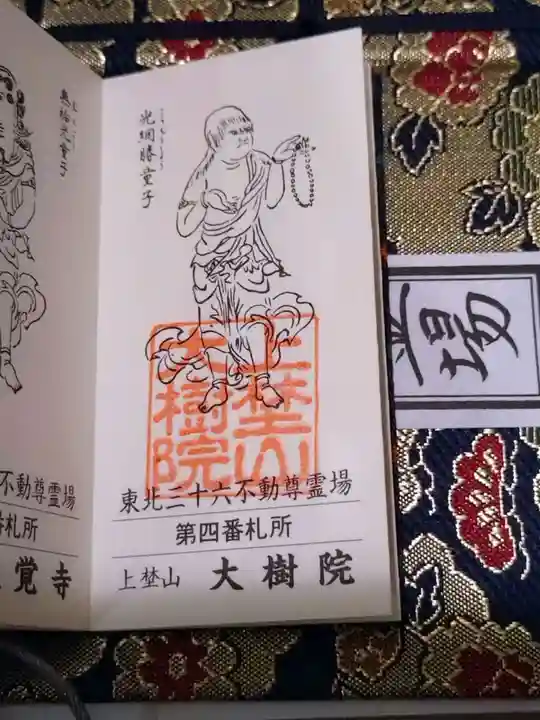 光網勝童子
上埜山
大樹院
東北三十六不動尊霊場
第四番札所
上埜山 大樹院
不動尊霊場
番札所
覚寺
場